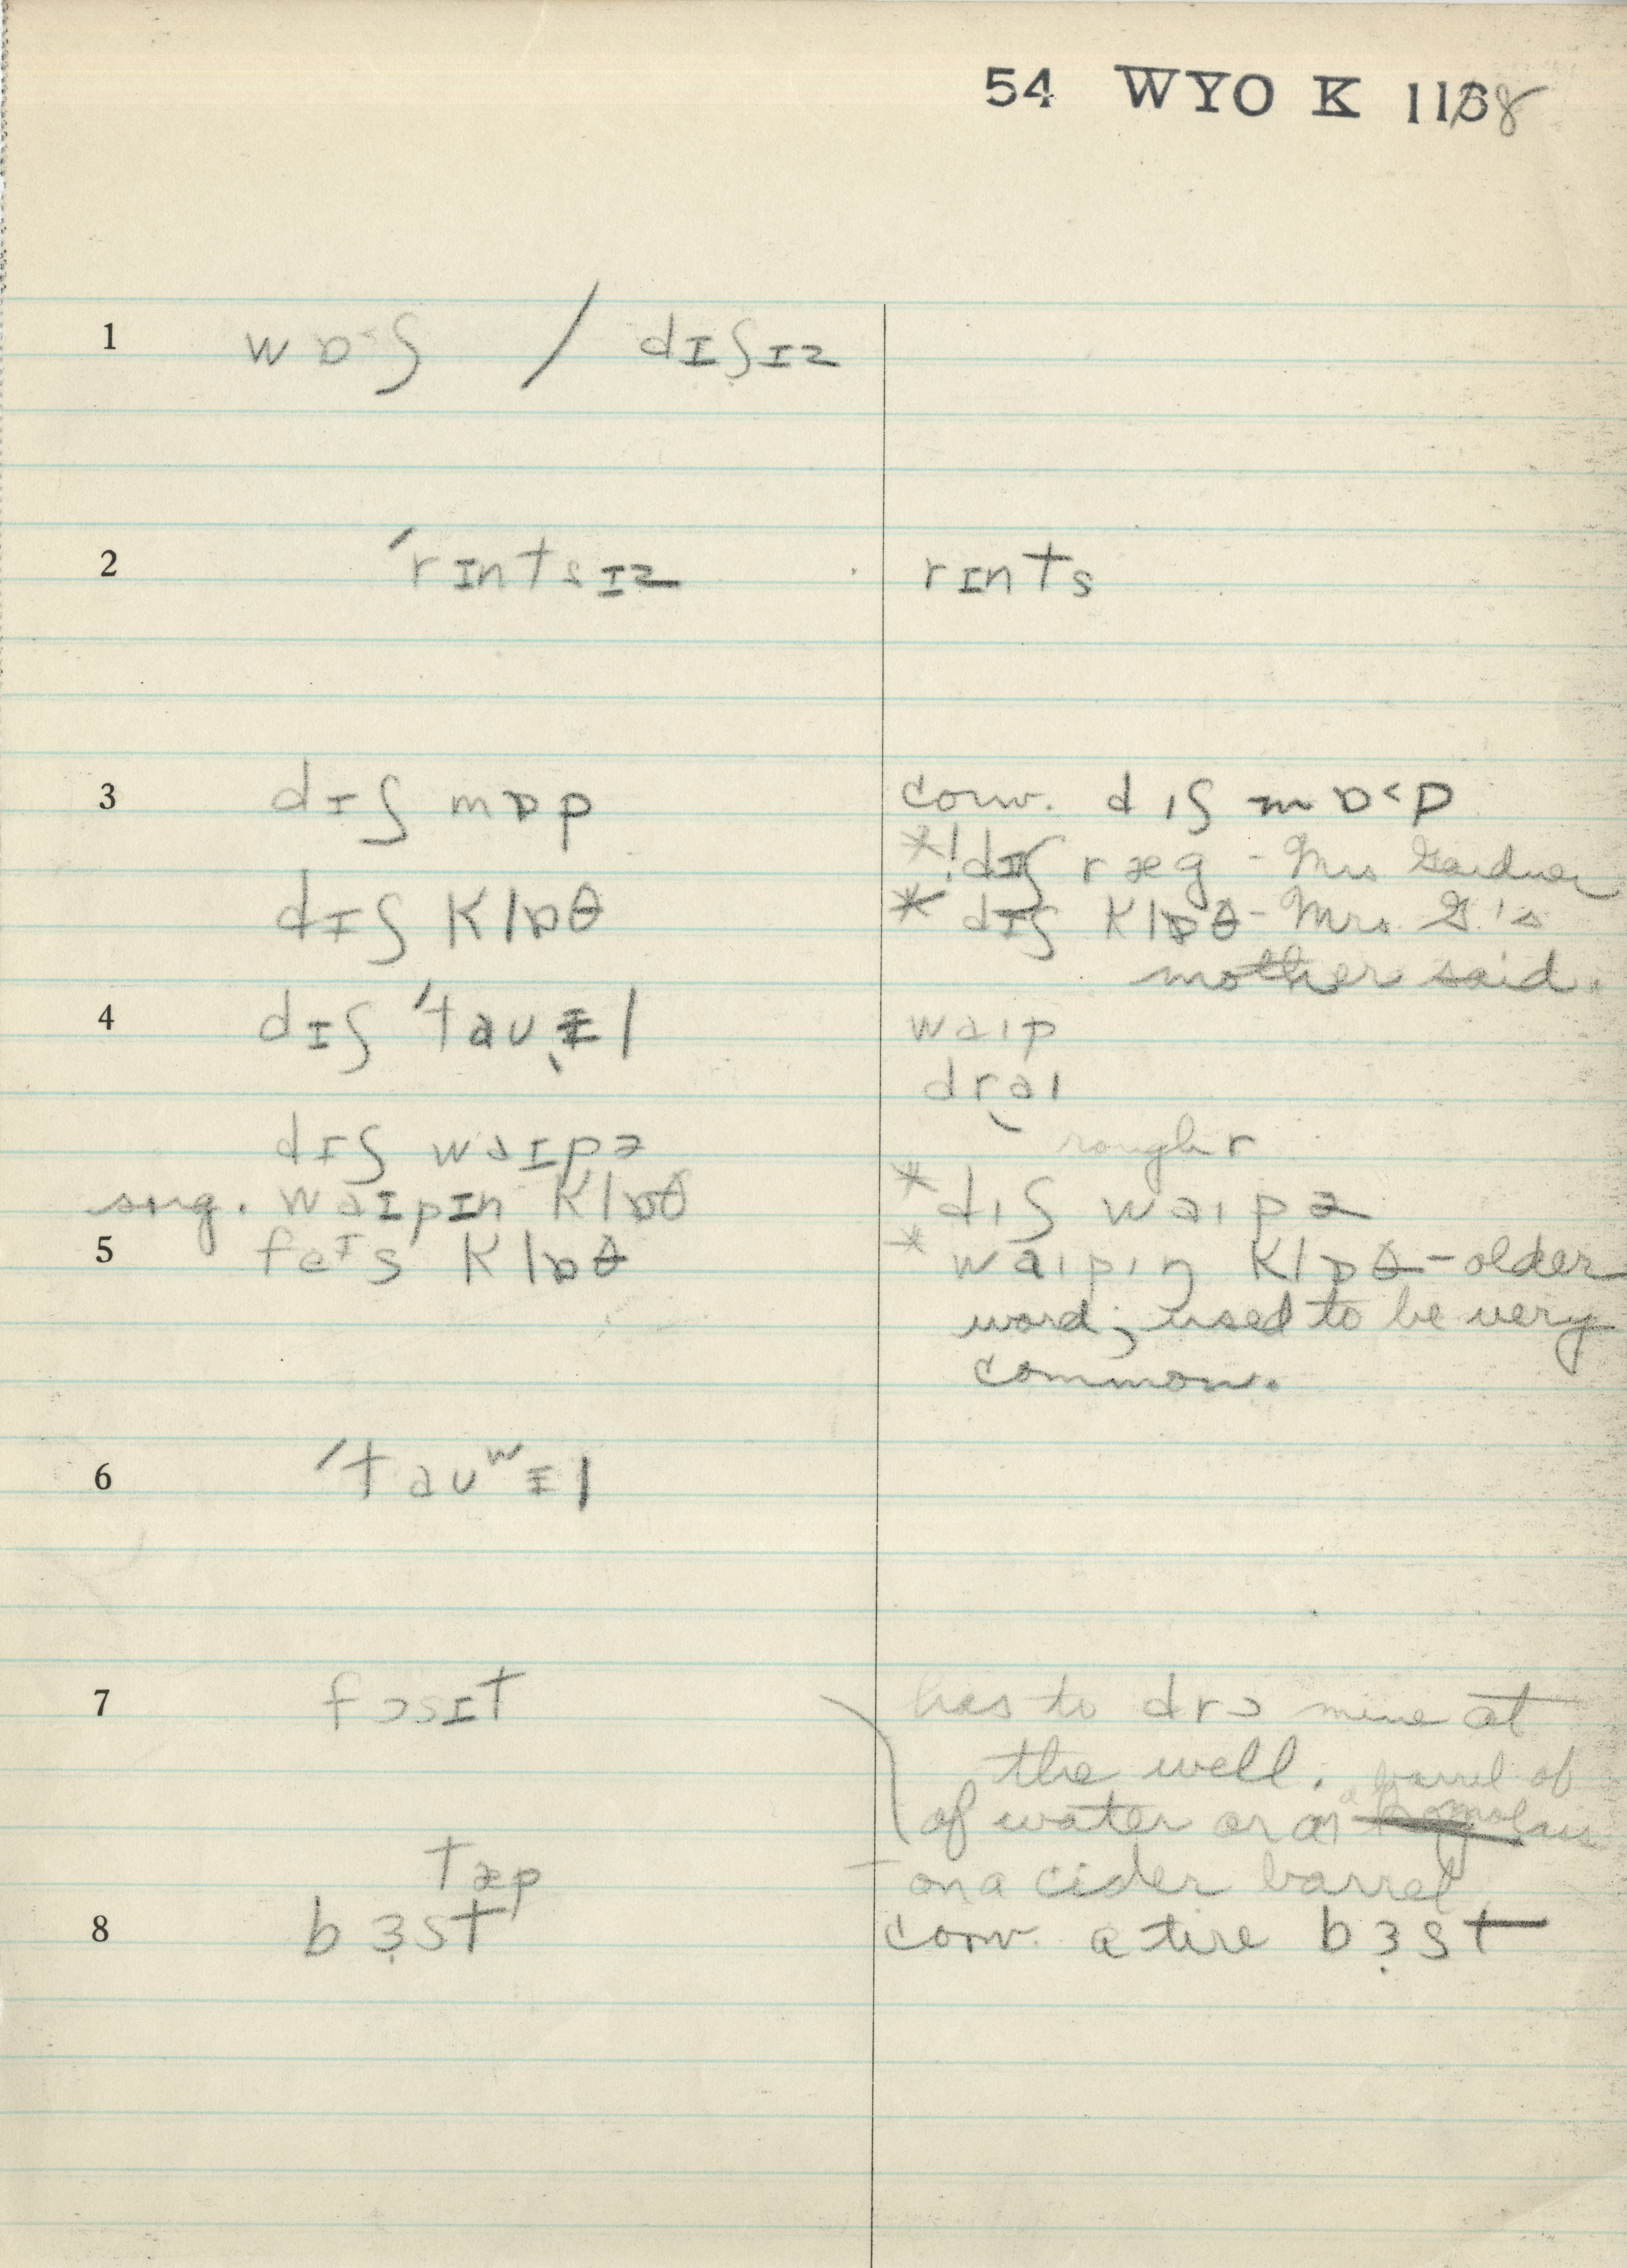 54 WYO K 1168
1 wɒ˂ʃ / dɪʃɪz
2 ˈrɪntsɪz rɪnts
3 dɪʃ mɒp conv. dɪʃ mɒ˂p
*! dɪʃ ræg - Mrs Gardner
dɪʃ klɒθ * dɪʃ klɒθ - Mrs. G.'s
mother said.
4 dɪʃ ˈtaʊɨl waɪp
draɪ
rough r
dɪʃ waɪpɚ
sug. waɪpɪn klɒθ * dɪʃ waɪpɚ
5 feɪs klɒθ * waɪpɪŋ klɒθ - older
word; used to be very
common.
6 ˈtaʊʷɨl
7 fɔsɪt has to drɔ mine at
the well. a barrel of
of water or molass
tæp on a cider barrel
8 bɜst conv. a tire bɜst